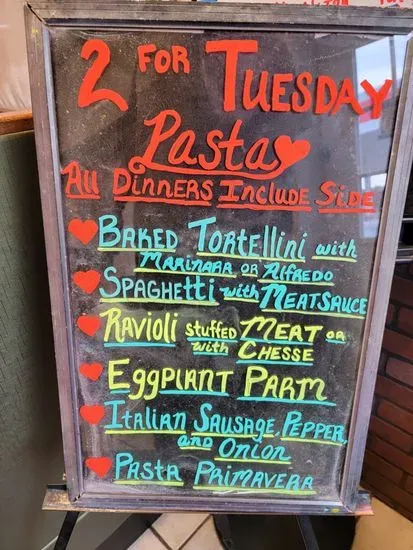 2 FOR TUESDAY
Pasta
All DINNERS INCLUDE SIDE
BAKED TORTEllINI with
MARINARA OR AlFREDO
SPAGHETTI with MEATSAUCE
RAVIOLI STUFFED MEAT OR
with CHESSE
EGGPlANT PARM
ITALIAN SAUSAGE, PEPPER
AND ONION
PASTA PRIMAVERA